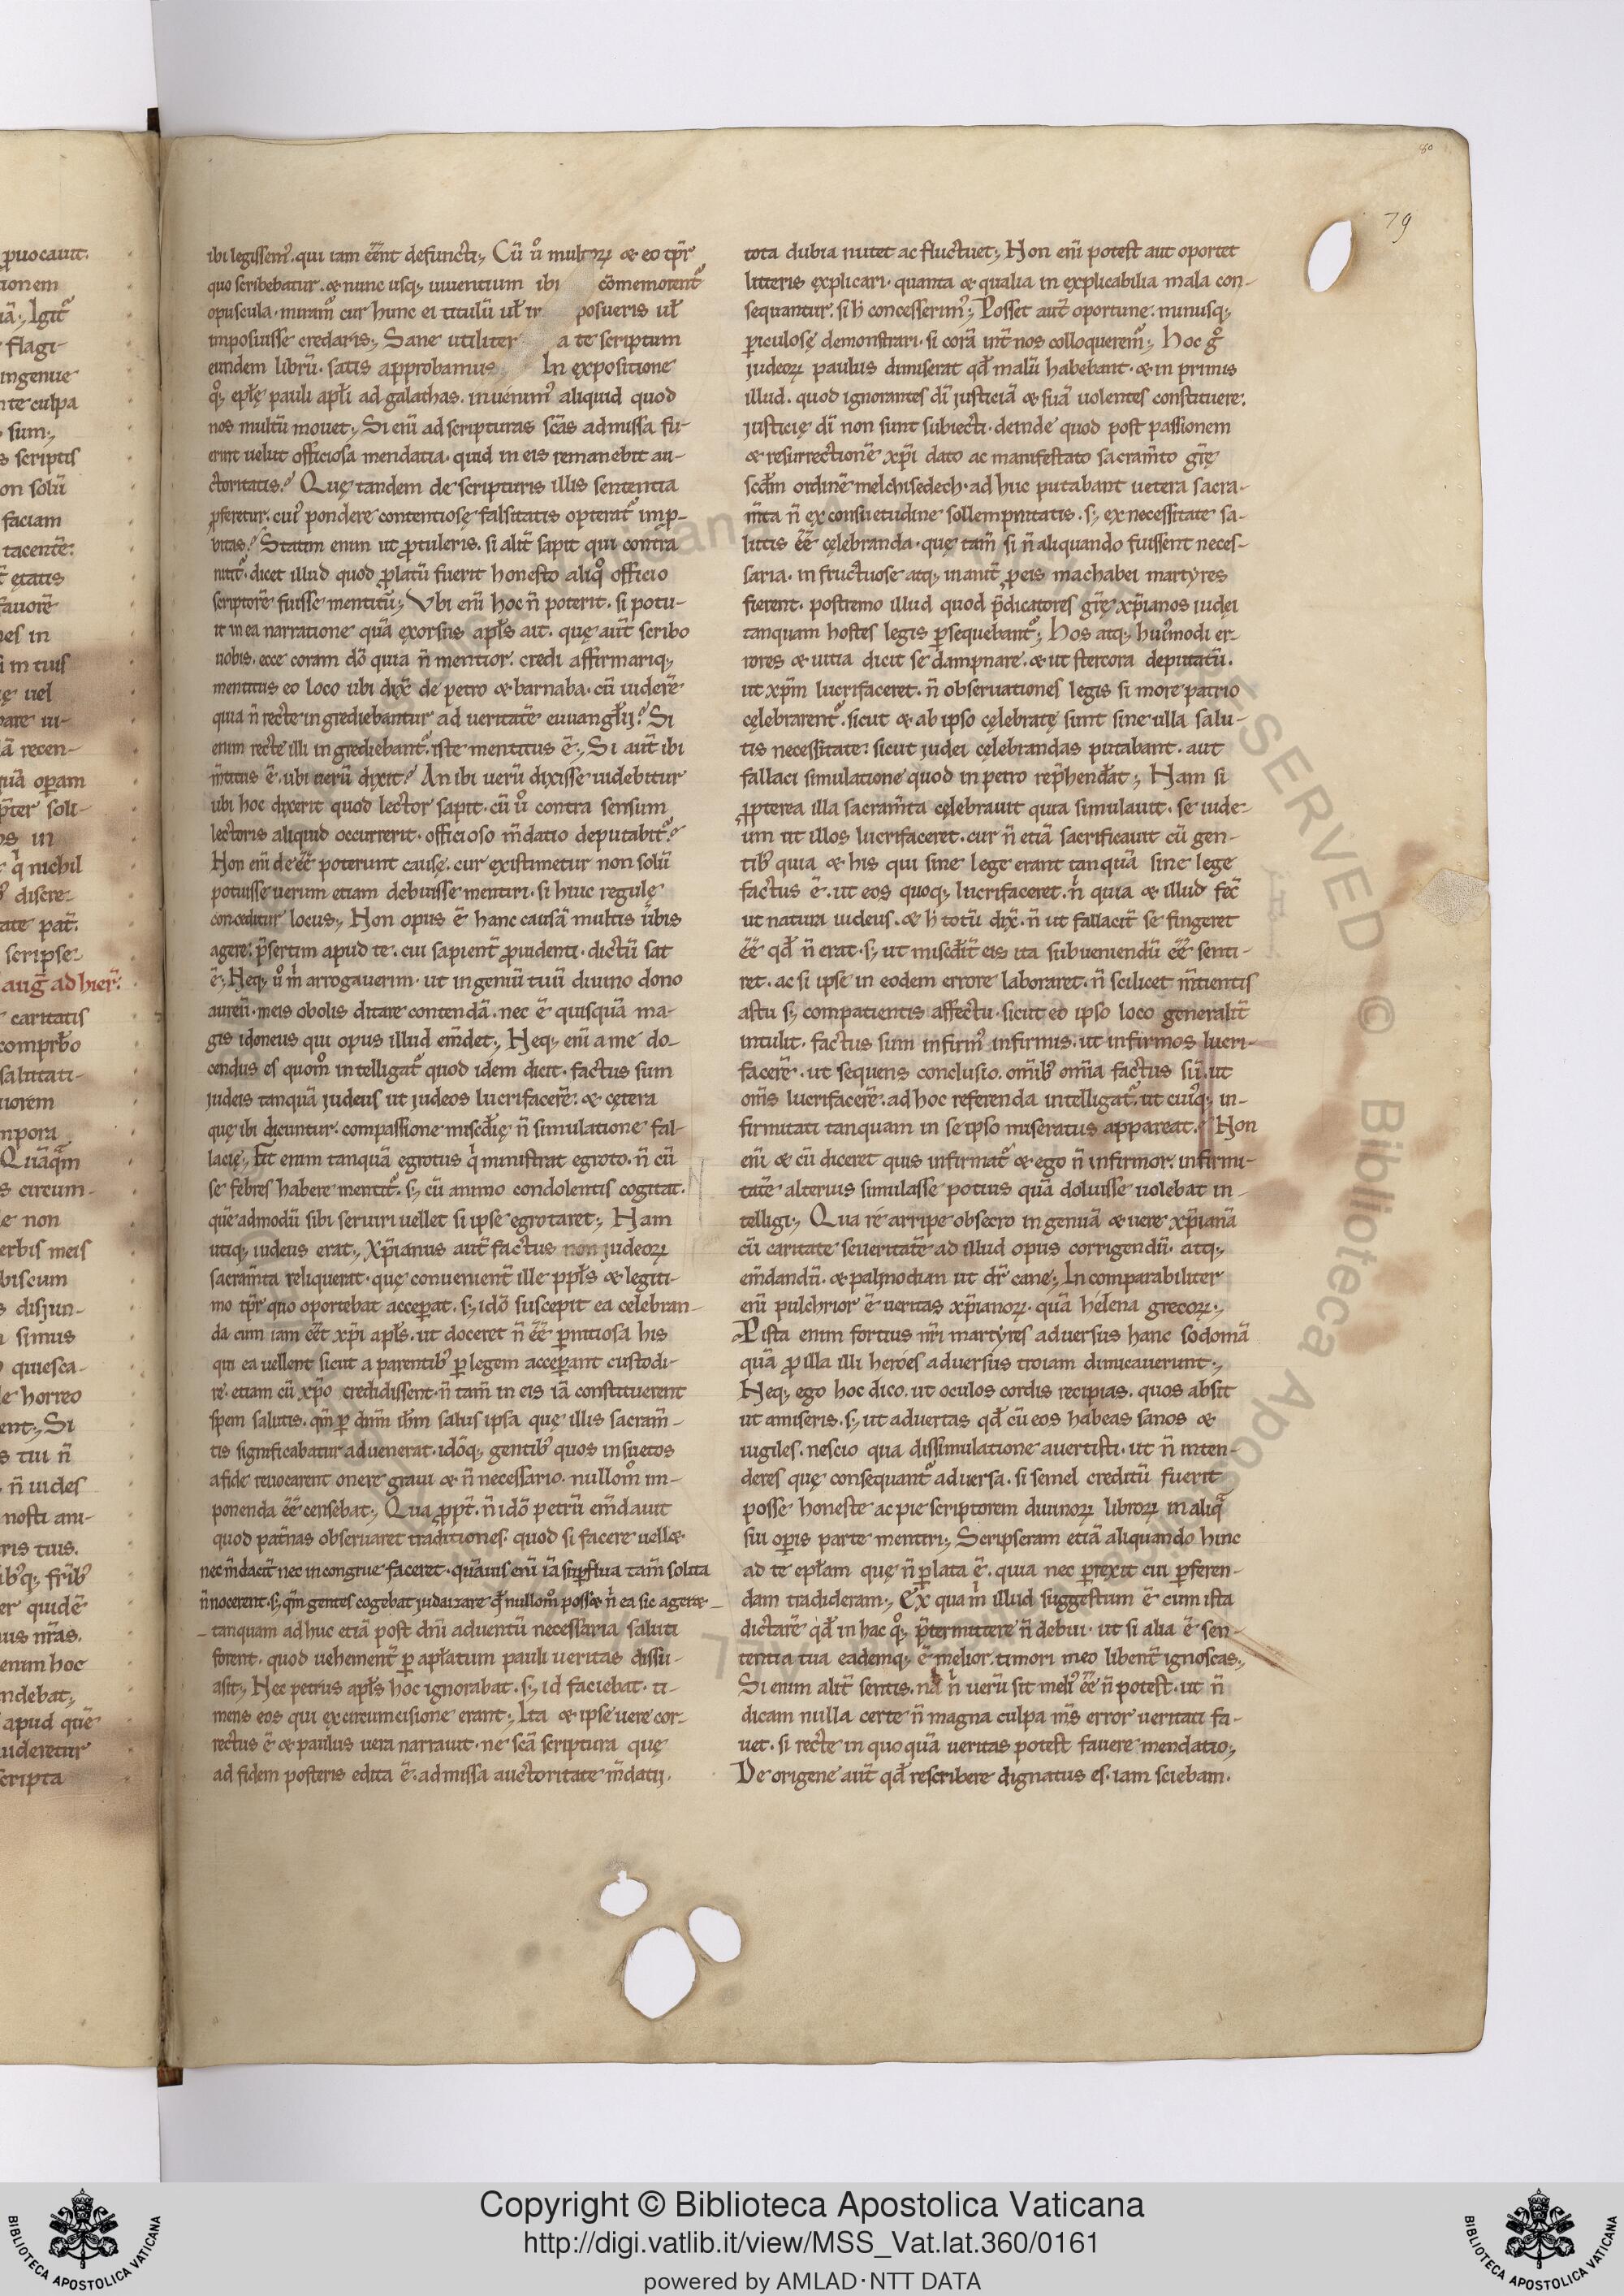 80
79
ꝓuocauit.
tionem
uā; Igit᷑
flagi-
ingenue
nte culpa
sum;
s scriptis
on solū
faciam
tacente:
ętatis
fauorē
nes in
i in tuis
ę uel
pare ui-
ā recen-
quā oꝑam
ꝓpter soli-
os in
q̇ nichil
discre-
tate pat̄.
scripse-
aug̃ ad hier̃:
caritatis
comprƀo
salutati-
uorem
mpora
Quāqm̄
s circum-
le non
erbis meis
biscum
s disjun-
simus
quiesca-
de horreo
ent; Si
s tui n̄
n̄ uides
nosti ani-
ris tuis.
ib᷒q; frib᷒
er quidē
uus nr̄as.
enim hoc
ndebat;
apud quē
uideretur
scripta
ibi legissem᷒. qui iam eēnt defuncti; Cū ů multoꝝ & eo tp̄r
quo scribebatur. & nunc usq; uiuentium ibi cōmemorent᷑
opuscula. miram̊ cur hunc ei titulū uł ir posueris uł
imposuisse credaris; Sane utiliter a te scriptum
eundem librū. satis approbamus In expositione
q̊; epłę pauli apłi ad galathas. inuenim᷒ aliquid quod
nos multū mouet; Si eni ad scripturas scās admissa fu-
erint uelut officiosa mendatia. quid in eis remanebit au-
ctoritatis? Quę tandem de scripturis illis sententia
ꝓferetur. cui᷒ pondere contentiosę falsitatis opterat᷑ imp̄-
bitas? Statim enim ut ꝓtuleris. si alit̄ sapit qui contra
nitit᷑. dicet illud quod ꝓlatū fuerit honesto aliq̊ officio
scriptorē fuisse mentitū; Vbi eni hoc n̄ poterit. si potu-
it in ea narratione quā exorsus apłs ait. quę aut̄ scribo
uobis. ecce coram dō quia n̄ mentior. credi affirmariq;
mentitus eo loco ubi dix̄ de petro & barnaba. cū uiderē
quia n̄ recte ingrediebantur ad ueritatē euuangłij? Si
enim recte illi ingrediebant᷑. iste mentitus ē; Si aut̄ ibi
m̄titus ē. ubi uerū dixit? An ibi uerū dixisse uidebitur
ubi hoc dixerit quod lector sapit. cū ů contra sensum
lectoris aliquid occurrerit. officioso m̄datio deputabit᷑?
Non eni deeē poterunt causę. cur existimetur non solū
potuisse uerum etiam debuisse mentiri. si huic regulę
conceditur locus; Non opus ē hanc causā multis ūbis
agere. p̄sertim apud te. cui sapient̄ ꝓuidenti. dictū sat
ē; Neq; ů m̊ arrogauerim. ut ingeniū tuū diuino dono
aureū. meis obolis ditare contendā. nec ē quisquā ma-
gis idoneus qui opus illud em̄det; Neq; eni a me do-
cendus es quom̊ intelligat᷑ quod idem dicit. factus sum
judeis tanquā judeus ut judeos lucrifacerē. & cętera
quę ibi dicuntur. compassione misc̄dię n̄ simulatione fal-
lacię; Fit enim tanquā egrotus q̇ ministrat egroto. n̄ cū
se febres habere mentit᷑. s; cū animo condolentis cogitat.
quēadmodū sibi seruiri uellet si ipse egrotaret; Nam
utiq; iudeus erat; Xp̄ianus aut̄ factus non judeoꝝ
sacram̄ta reliquerat. quę conuenient̄ ille ppłs & legiti-
mo tp̄r quo oportebat acceꝑat. s; idō suscepit ea celebran-
da. cum iam eēt xp̄i apłs. ut doceret n̄ eē ꝑnitiosa his
qui ea uellent sicut a parentib᷒ ꝑ legem acceꝑant custodi-
re. etiam cū xp̄o credidissent. n̄ tam̄ in eis iā constituerent
spem salutis. qm̄ ꝑ dnm ihm salus ipsa quę illis sacram̄-
tis significabatur aduenerat. idōq; gentib᷒ quos insuetos
a fide reuocarent onere graui & n̄ necessario. nullom̊ im-
ponenda eē censebat; Qua ꝓpt̄. n̄ idō petrū em̄dauit
quod pat̄nas obseruaret traditiones. quod si facere uell&
nec m̄dacit̄ nec incongrue faceret. quāuis eni iā suꝑflua tam̄ solita
n̄ nocerent. s; qm̄ gentes cogebat judaizare qd̄ nullom̊ poss& n̄ ea sic ager&-
-tanquam ad huc etiā post dni aduentū necessaria saluti
forent. quod uehement̄ ꝑ apłatum pauli ueritas dissu-
asit; Nec petrus apłs hoc ignorabat. s; id faciebat. ti-
mens eos qui ex circumcisione erant; Ita & ipse uere cor-
rectus ē & paulus uera narrauit. ne scā scriptura quę
ad fidem posteris edita ē. admissa auctoritate m̄datij.
tota dubia nutet ac fluctuet; Non eni potest aut oportet
litteris explicari. quanta & qualia in explicabilia mala con-
sequantur. si h̄ concesserim᷒; Posset aut̄ oportune. minusq;
ꝑiculosę demonstrari. si corā int̄ nos colloquerem᷑; Hoc g̊
judeoꝝ paulus dimiserat qd̄ malū habebant. & in primis
illud. quod ignorantes di justiciā & suā uolentes constituere.
justicię di non sunt subiecti. deinde quod post passionem
& resurrectionē xp̄i dato ac manifestato sacram̄to gr̄ę
scd̄m ordinē melchisedech. ad huc putabant uetera sacra-
m̄ta n̄ ex consuetudine sollempnitatis. s; ex necessitate sa-
lutis eē cęlebranda. quę tam̄ si n̄ aliquando fuissent neces-
saria. infructuose atq; inanit̄ ꝓ eis machabei martyres
fierent. postremo illud quod p̄dicatores gr̄ę xp̄ianos iudei
tanquam hostes legis ꝑsequebant᷑; Hos atq; hui᷒modi er-
rores & uitia dicit se dampnare. & ut stercora deputatū.
ut xp̄m lucrifaceret. n̄ obseruationes legis si more patrio
cęlebrarent᷑. sicut & ab ipso cęlebratę sunt sine ulla salu-
tis necessitate. sicut judei cęlebrandas putabant. aut
fallaci simulatione quod in petro rep̄hend̄at; Nam si
ꝓpterea illa sacram̄ta cęlebrauit quia simulauit. se iude-
um ut illos lucrifaceret. cur n̄ etiā sacrificauit cū gen-
tib᷒ quia & his qui sine lege erant tanquā sine lege
factus ē. ut eos quoq; lucrifaceret. n̄ quia & illud fec̄
ut natura iudeus. & h̄ totū dix̄. n̄ ut fallacit̄ se fingeret
eē qd̄ n̄ erat. s; ut misc̄dit̄ eis ita subueniendū eē senti-
ret. ac si ipse in eodem errore laboraret. n̄ scilicet m̄tientis
astu s; compatientis affectu. sicut eo ipso loco generalit̄
intulit. factus sum infirm᷒ infirmis. ut infirmos lucri-
facerē. ut sequens conclusio. omib᷒ omia factus sū. ut
oms lucrifacerē. ad hoc referenda intelligat᷑. ut cui᷒q; in-
firmitati tanquam in se ipso miseratus appareat; Non
eni & cū diceret quis infirmat᷑ & ego n̄ infirmor. infirmi-
tatē alterius simulasse potius quā doluisse uolebat in-
telligi; Qua rē arripe obsecro ingenuā & uere xp̄ianā
cū caritate seueritatē ad illud opus corrigendū. atq;
em̄dandū. & palinodian ut dr̄ cane; Incomparabiliter
eni pulchrior ē ueritas xp̄ianoꝝ. quā helena grecoꝝ;
P ista enim fortius nr̄i martyres aduersus hanc sodomā
quā ꝓ illa illi heroes aduersus troiam dimicauerunt;
Neq; ego hoc dico. ut oculos cordis recipias. quos absit
ut amiseris. s; ut aduertas qd̄ cū eos habeas sanos &
uigiles. nescio qua dissimulatione auertisti. ut n̄ inten-
deres quę consequant᷑ aduersa. si semel creditū fuerit
posse honeste ac pie scriptorem diuinoꝝ libroꝝ in aliq̄
sui oꝑis parte mentiri; Scripseram etiā aliquando hinc
ad te epłam quę n̄ ꝑlata ē. quia nec ꝑrexit cui ꝑferen-
dam tradideram; Ex qua m̊ illud suggestum ē cum ista
dictarē qd̄ in hac q̊; p̄termittere n̄ debui. ut si alia ē sen-
tentia tua eademq; ē melior. timori meo libent̄ ignoscas;
Si enim alit̄ sentis. nā n̄ uerū sit meli᷒ eē n̄ potest. ut n̄
dicam nulla certe n̄ magna culpa ms error ueritati fa-
uet. si recte in quoquā ueritas potest fauere mendatio;
De origene aut̄ qd̄ rescribere dignatus es. iam sciebam.
Copyright © Biblioteca Apostolica Vaticana
http://digi.vatlib.it/view/MSS_Vat.lat.360/0161
powered by AMLAD·NTT DATA
BIBLIOTECA APOSTOLICA VATICANA
BIBLIOTECA APOSTOLICA VATICANA